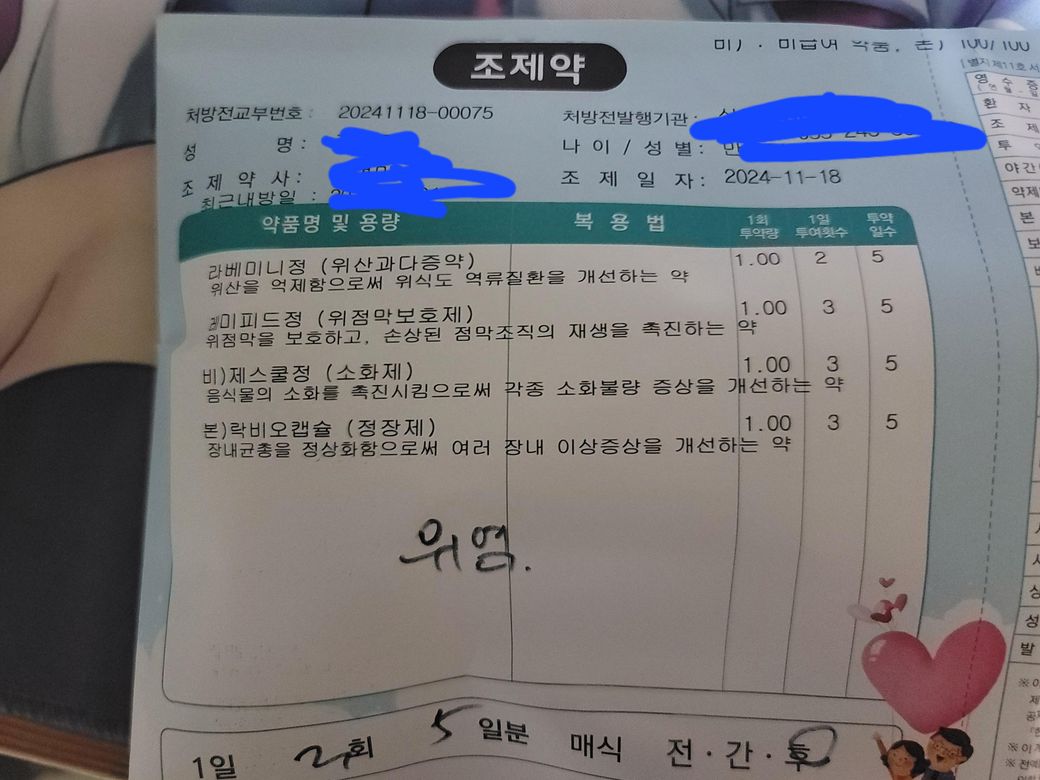 미) · 비급여 약품, 본) 100/100
조제약
별지 제11호 서
처방전교부번호 : 20241118-00075
처방전발행기관 :
성 명 :
나 이 / 성 별 : 만
조 제 약 사 :
조 제 일 자 : 2024-11-18
최근내방일 :
약품명 및 용량 복 용 법 1회 투약량 1일 투여횟수 투약 일수
라베미니정 (위산과다증약) 1.00 2 5
위산을 억제함으로써 위식도 역류질환을 개선하는 약
레미피드정 (위점막보호제) 1.00 3 5
위점막을 보호하고, 손상된 점막조직의 재생을 촉진하는 약
비)제스쿨정 (소화제) 1.00 3 5
음식물의 소화를 촉진시킴으로써 각종 소화불량 증상을 개선하는 약
본)락비오캡슐 (정장제) 1.00 3 5
장내균총을 정상화함으로써 여러 장내 이상증상을 개선하는 약
위염.
1일 2회 5 일분 매식 전 · 간 · 후
영 수 증
환 자
조 제
투 약
야간
약제
본